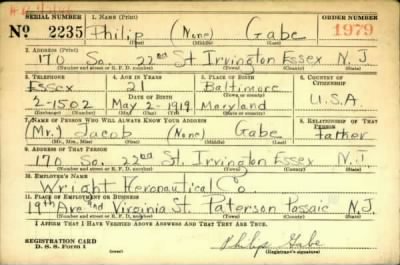 SERIAL NUMBER 1. NAME (Print) ORDER NUMBER
Nº 2235 Philip (None) Gabe 1979
(First) (Middle) (Last)
2. ADDRESS (Print)
170 So. 22nd St. Irvington Essex N.J.
(Number and street or R. F. D. number) (Town) (County) (State)
3. TELEPHONE 4. AGE IN YEARS 5. PLACE OF BIRTH 6. COUNTRY OF CITIZENSHIP
Essex 21 Baltimore
DATE OF BIRTH (Town or county)
2-1502 May 2-1919 Maryland U.S.A.
(Exchange) (Number) (Mo.) (Day) (Yr.) (State or country)
7. NAME OF PERSON WHO WILL ALWAYS KNOW YOUR ADDRESS 8. RELATIONSHIP OF THAT PERSON
(Mr.) Jacob (None) Gabe father
(Mr., Mrs., Miss) (First) (Middle) (Last)
9. ADDRESS OF THAT PERSON
170 So. 22nd St. Irvington Essex N.J.
(Number and street or R. F. D. number) (Town) (County) (State)
10. EMPLOYER'S NAME
Wright Aeronautical Co.
11. PLACE OF EMPLOYMENT OR BUSINESS
19th Ave and Virginia St. Paterson Passaic N.J.
(Number and street or R. F. D. number) (Town) (County) (State)
I AFFIRM THAT I HAVE VERIFIED ABOVE ANSWERS AND THAT THEY ARE TRUE.
REGISTRATION CARD
D. S. S. Form 1
Philip Gabe